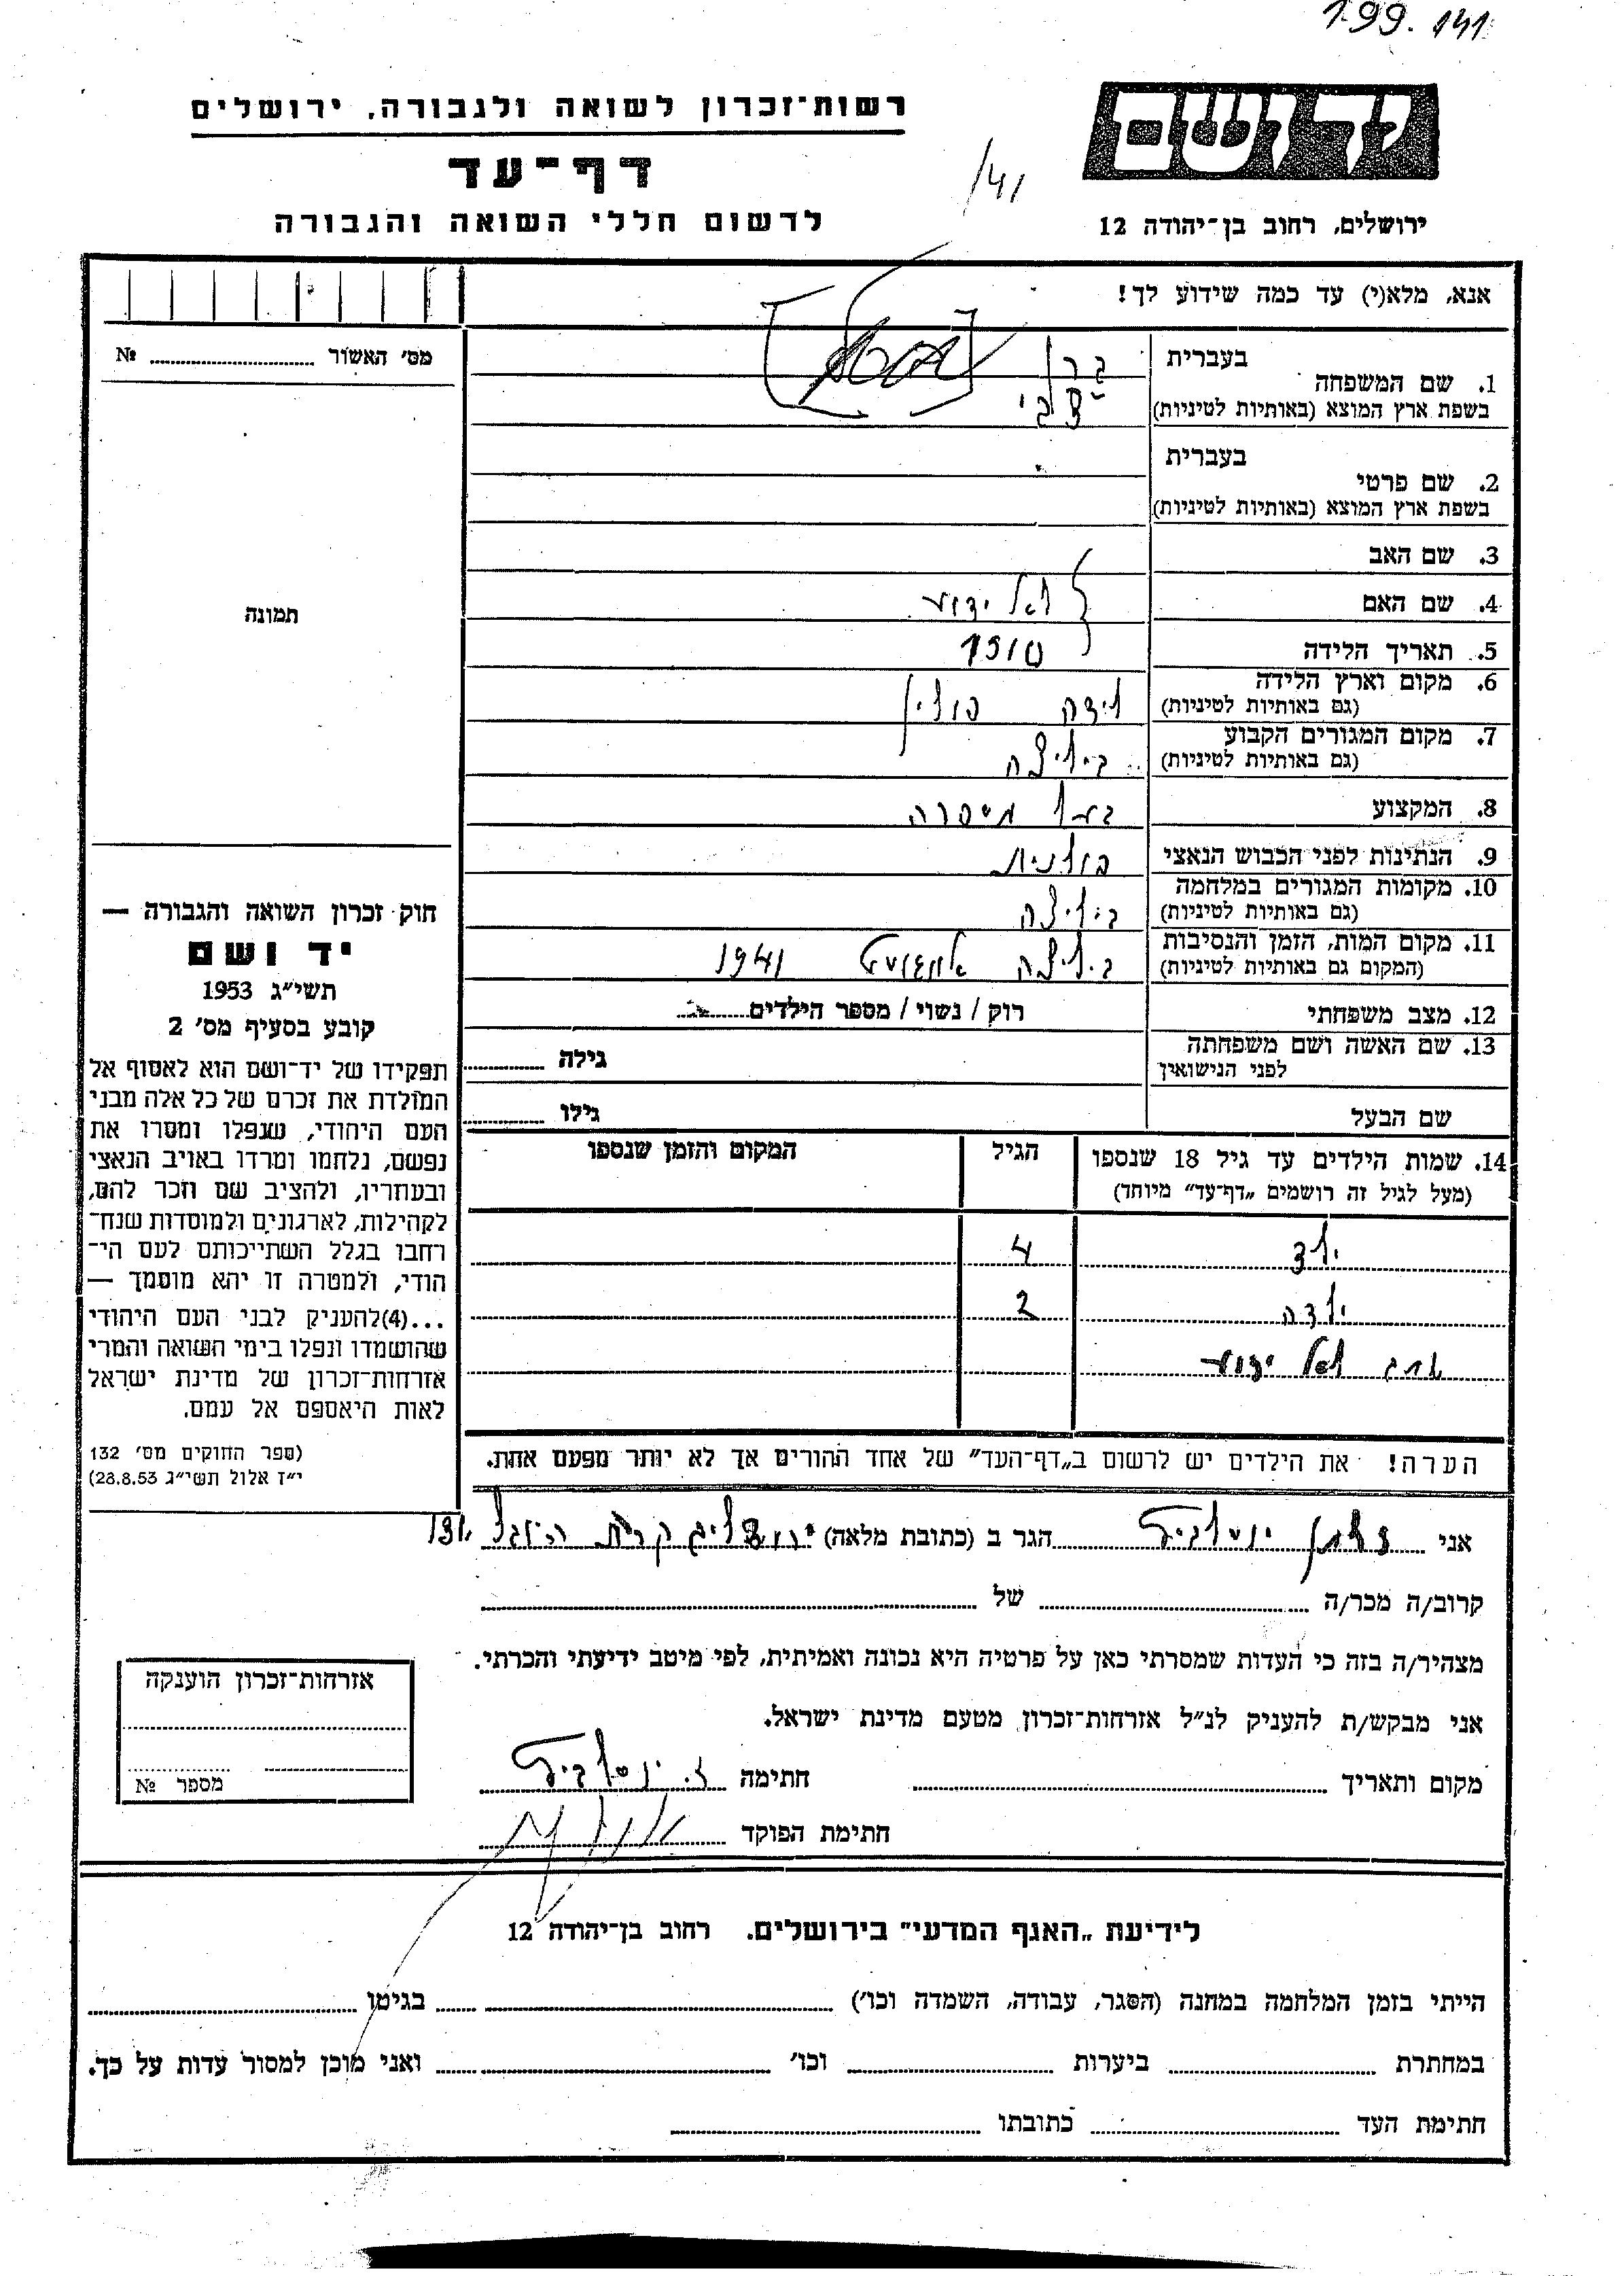 199. 141
יד ושם
רשות־זכרון לשואה ולגבורה, ירושלים
דף־עד
/41
לרשום חללי השואה והגבורה
ירושלים, רחוב בן־יהודה 12
אנא, מלא(י) עד כמה שידוע לך!
מס׳ האשור № 
בעברית
1. שם המשפחה
בשפת ארץ המוצא (באותיות לטיניות)
בעברית
2. שם פרטי
בשפת ארץ המוצא (באותיות לטיניות)
3. שם האב
4. שם האם לא ידוע
5. תאריך הלידה 1910
6. מקום וארץ הלידה
(גם באותיות לטיניות) לידה פולין
7. מקום המגורים הקבוע
(גם באותיות לטיניות) ביליצה
8. המקצוע בעל מיסרה
9. הנתינות לפני הכבוש הנאצי פולנית
10. מקומות המגורים במלחמה
(גם באותיות לטיניות) ביליצה
11. מקום המות, הזמן והנסיבות
(המקום גם באותיות לטיניות) ביליצה אוגוסט 1941
12. מצב משפחתי רוק / נשוי / מספר הילדים
13. שם האשה ושם משפחתה
לפני הנישואין גילה
שם הבעל גילו
14. שמות הילדים עד גיל 18 שנספו הגיל המקום והזמן שנספו
(מעל לגיל זה רושמים „דף־עד” מיוחד)
ילד 4
ילדה 2
לא ידוע
הערה! את הילדים יש לרשום ב„דף־העד” של אחד ההורים אך לא יותר מפעם אחת.
תמונה
חוק זכרון השואה והגבורה —
יד ושם
תשי״ג 1953
קובע בסעיף מס׳ 2
תפקידו של יד־ושם הוא לאסוף אל
המולדת את זכרם של כל אלה מבני
העם היהודי, שנפלו ומסרו את
נפשם, נלחמו ומרדו באויב הנאצי
ובעוזריו, ולהציב שם וזכר להם,
לקהילות, לארגונים ולמוסדות שנח־
רחבו בגלל השתייכותם לעם הי־
הודי, ולמטרה זו יהא מוסמך —
...(4)להעניק לבני העם היהודי
שהושמדו ונפלו בימי השואה והמרי
אזרחות־זכרון של מדינת ישראל
לאות היאספם אל עמם.
(ספר החוקים מס׳ 132
י״ז אלול תשי״ג 28.8.53)
אני זלמן יוסלביץ הגר ב (כתובת מלאה) ירושלים קרית היובל 131
קרוב/ה מכר/ה של
מצהיר/ה בזה כי העדות שמסרתי כאן על פרטיה היא נכונה ואמיתית, לפי מיטב ידיעתי והכרתי.
אני מבקש/ת להעניק לנ״ל אזרחות־זכרון מטעם מדינת ישראל.
מקום ותאריך חתימה ז. יוסלביץ
חתימת הפוקד
אזרחות־זכרון הוענקה
מספר №
לידיעת „האגף המדעי” בירושלים. רחוב בן־יהודה 12
הייתי בזמן המלחמה במחנה (הסגר, עבודה, השמדה וכו׳) בגיטו
במחתרת ביערות וכו׳ ואני מוכן למסור עדות על כך.
חתימת העד כתובתו